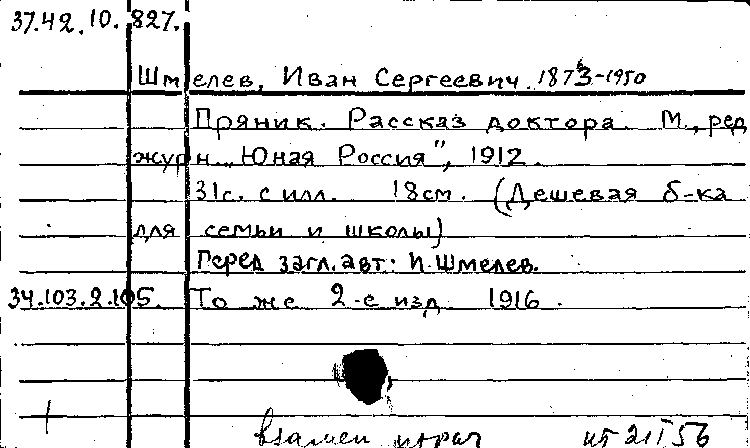 37.42.10.827.
Шмелев, Иван Сергеевич. 1873-1950
Пряник. Рассказ доктора. М., ред
журн. „Юная Россия", 1912.
31с. с илл. 18см. (Дешевая б-ка
для семьи и школы)
Перед загл. авт: И. Шмелев.
34.103.2.105. То же 2-е изд 1916.
взамен утрач